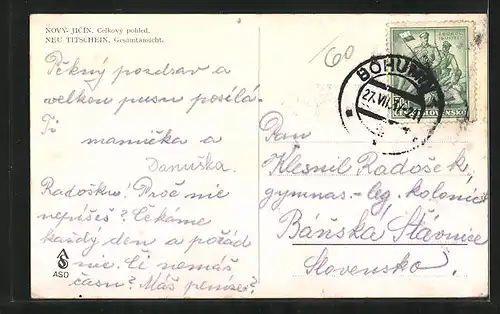 NOVÝ JIČÍN. Celkový pohled.
NEU TITSCHEIN. Gesamtansicht.
160
BOHUMÍN
27.VII.
ČESKOSLOVENSKO
Pěkný pozdrav a
velkou pusu posílá
Ti
mamička a
Danuška.
Radošku! Proč nic
nepíšeš? Čekáme
každý den a pořád
nic. Či nemáš
času? Máš peníze?
ASO
Pan
Klesnil Radošek,
gymnas.-leg. kolonie
Báňská Štávnice
Slovensko.